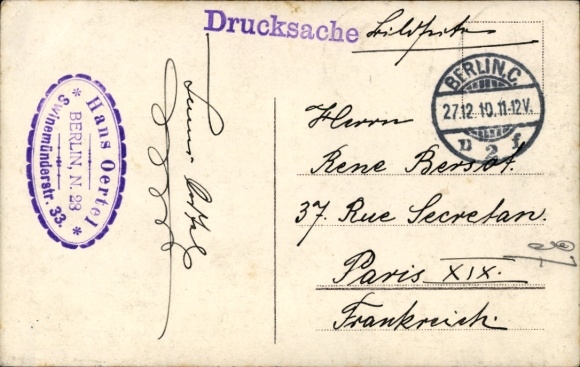 Drucksache
BERLIN.C.
27.12.10.11-12V.
n 2 f
Hans Oertel
BERLIN, N. 28
Swinemünderstr. 33.
Herrn
Rene Bersot.
37. Rue Secretan.
37
Paris XIX.
Frankreich.